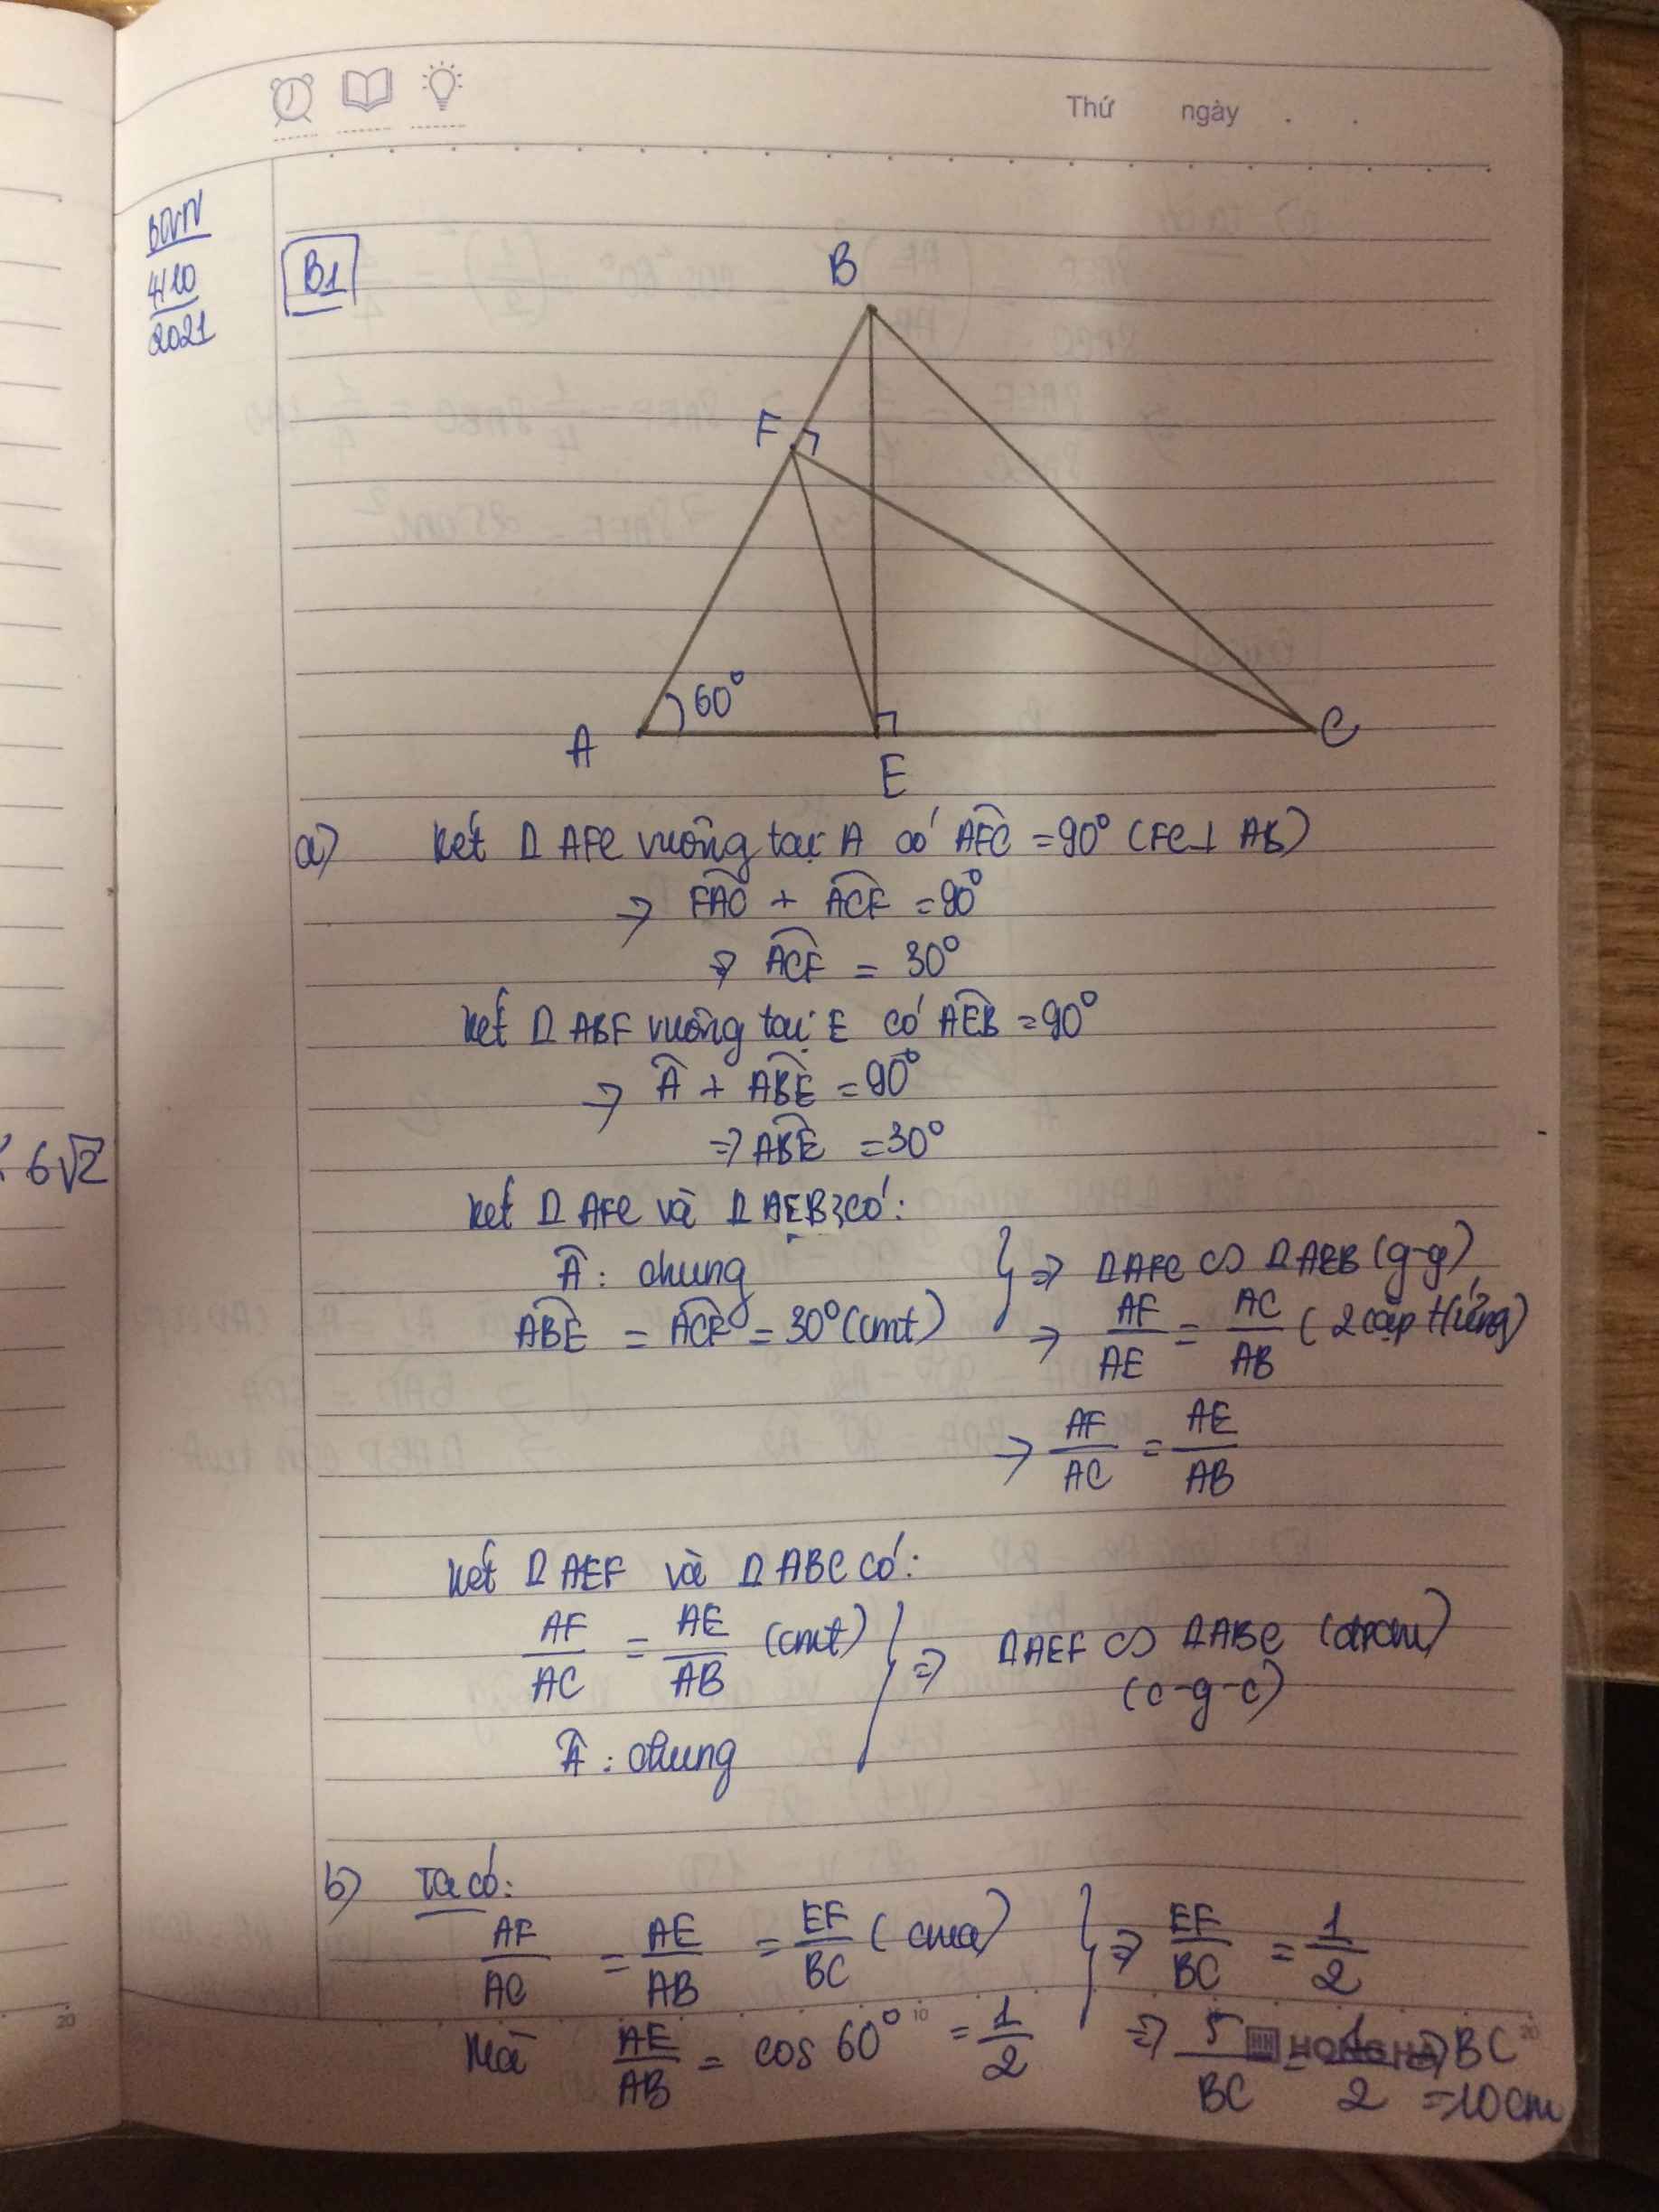 Thứ ngày . .
BTVN
4/10
2021
B1
B
F
60°
A
E
C
a) Xét Δ AFC vuông tại A có AFC = 90° (FC ⊥ AB)
=> FAC + ACF = 90°
=> ACF = 30°
Xét Δ ABF vuông tại E có AEB = 90°
=> Â + ABE = 90°
=> ABE = 30°
Xét Δ AFC và Δ AEB có:
Â : chung
ABE = ACF = 30° (cmt)
} => Δ AFC ∽ Δ AEB (g-g)
=> AF/AE = AC/AB (2 cặp t/ứng)
=> AF/AC = AE/AB
Xét Δ AEF và Δ ABC có:
AF/AC = AE/AB (cmt)
Â : chung
} => Δ AEF ∽ Δ ABC (đpcm)
(c-g-c)
b) Ta có:
AF/AC = AE/AB = EF/BC (cma)
Mà AE/AB = cos 60° = 1/2
} => EF/BC = 1/2
=> 5/BC = 1/2 => BC
= 10 cm
HONG HA
6√2
20
10
20